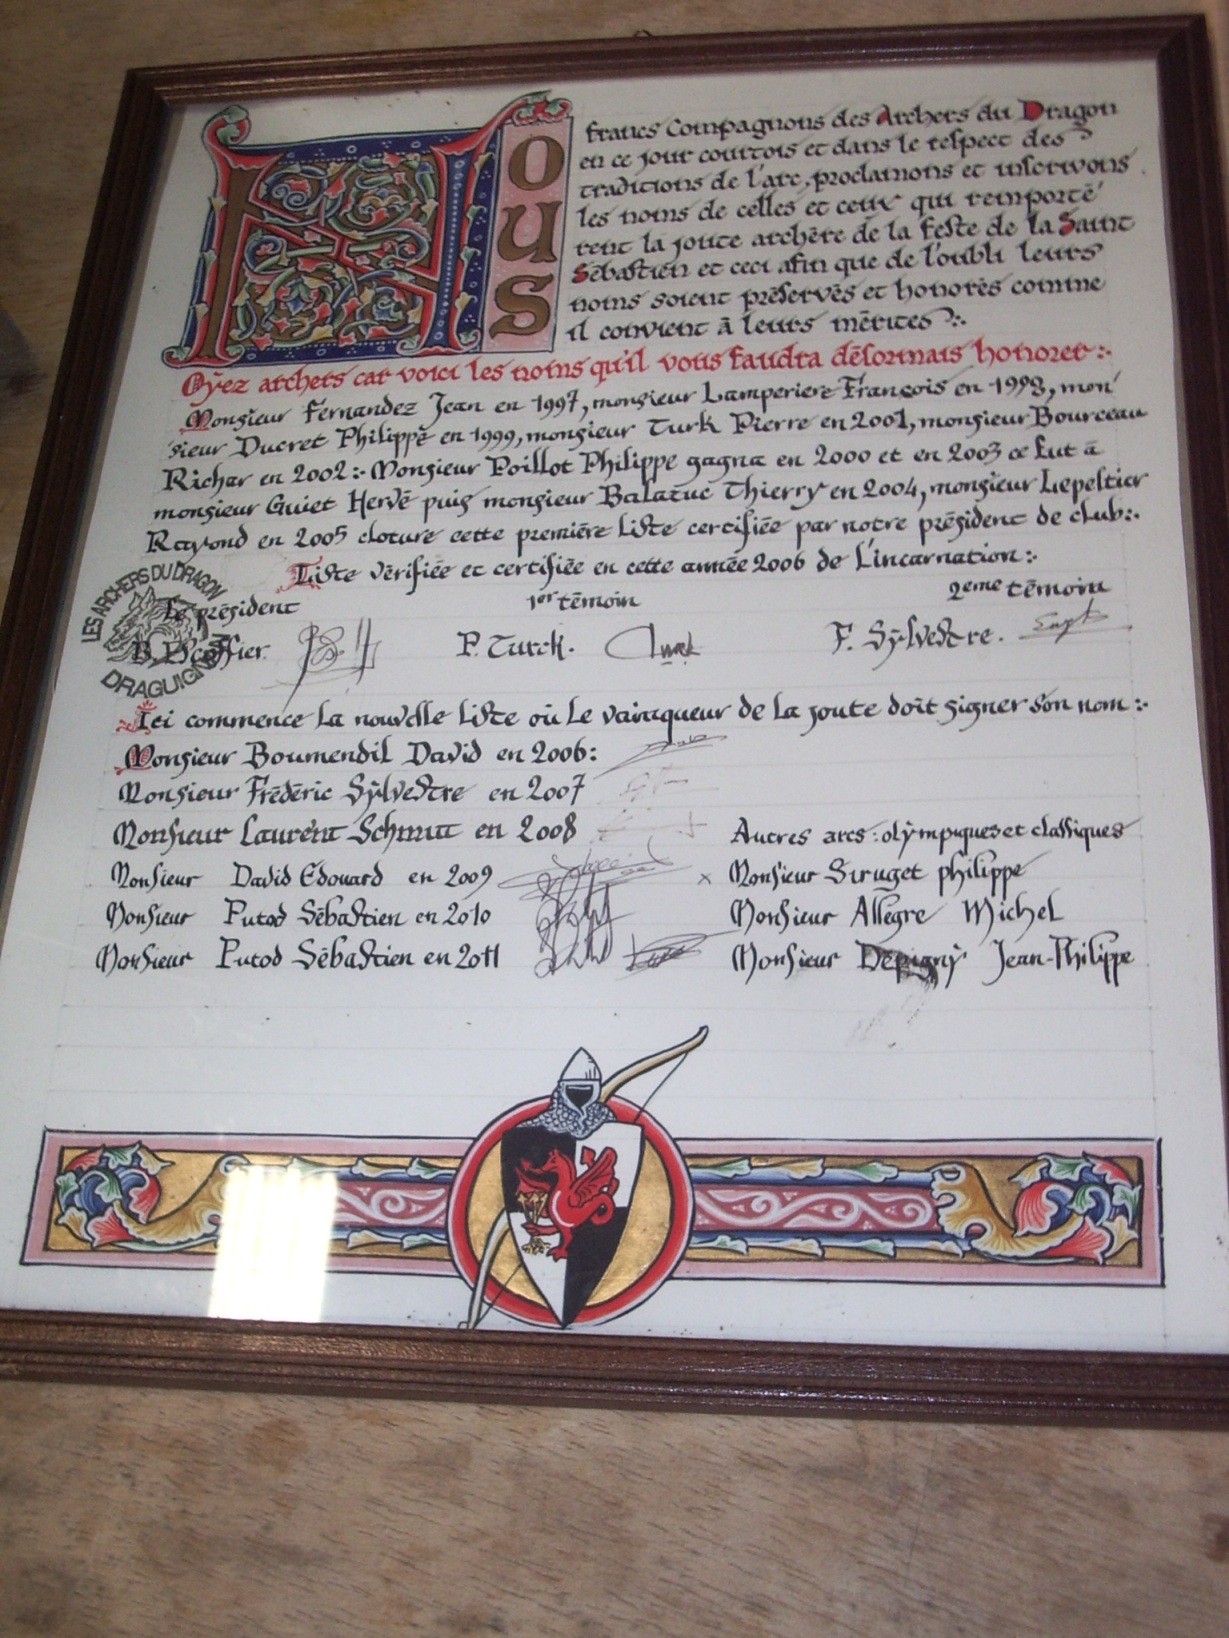 NOUS
francs Compagnons des Archers du Dragon
en ce jour courtois et dans le respect des
traditions de l'arc, proclamons et inscrivons
les noms de celles et ceux qui remporté
rent la joute archère de la feste de la Saint
Sébastien et ceci afin que de l'oubli leurs
noms soient préservés et honorés comme
il convient à leurs mérites :.
Oyez archers car voici les noms qu'il vous faudra désormais honorer :.
Monsieur Fernandez Jean en 1997, monsieur Lamperiere François en 1998, mon
sieur Ducret Philippe en 1999, monsieur Turk Pierre en 2001, monsieur Bourceau
Richar en 2002 :. Monsieur Poillot Philippe gagna en 2000 et en 2003 ce fut à
monsieur Guiet Hervé puis monsieur Balatuc Thierry en 2004, monsieur Lepeltier
Raymond en 2005 cloture cette première liste certifiée par notre président de club :.
Liste vérifiée et certifiée en cette année 2006 de l'incarnation :.
LES ARCHERS DU DRAGON
DRAGUIGNAN
Le président 1er témoin 2eme témoin
B. P. Turck. Turk F. Sylvestre.
Ici commence la nouvelle liste où le vainqueur de la joute doit signer son nom :.
Monsieur Boumendil David en 2006 :
Monsieur Frédéric Sylvestre en 2007
Monsieur Laurent Schmitt en 2008 Autres arcs : olympiques et classiques
Monsieur David Edouard en 2009 x Monsieur Siruget philippe
Monsieur Putod Sébastien en 2010 Monsieur Allègre Michel
Monsieur Putod Sébastien en 2011 Monsieur Depigny Jean-Philippe